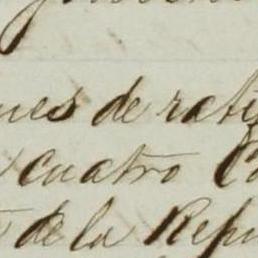 ues de rati
cuatro Co
de la Repu